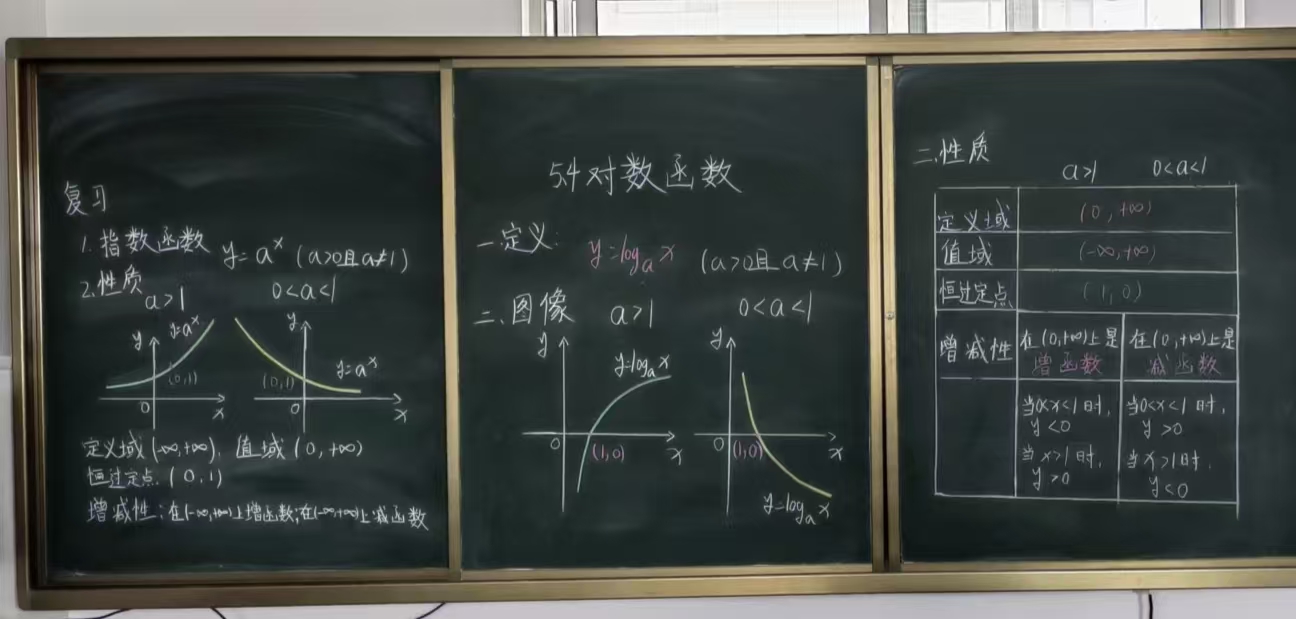 复习
1. 指数函数 y=aˣ (a>0且a≠1)
2. 性质
a>1 0<a<1
y y=aˣ (0,1) 0 x
y (0,1) y=aˣ 0 x
定义域(-∞,+∞), 值域(0,+∞)
恒过定点 (0,1)
增减性:在(-∞,+∞)上增函数;在(-∞,+∞)上减函数
5.4对数函数
一.定义: y=logₐx (a>0且a≠1)
二.图像 a>1 0<a<1
y y=logₐx 0 (1,0) x
y 0 (1,0) x y=logₐx
二.性质
a>1 0<a<1
定义域 (0,+∞)
值域 (-∞,+∞)
恒过定点 (1,0)
增减性 在(0,+∞)上是增函数 在(0,+∞)上是减函数
当0<x<1时, y<0 当0<x<1时, y>0
当x>1时, y>0 当x>1时, y<0